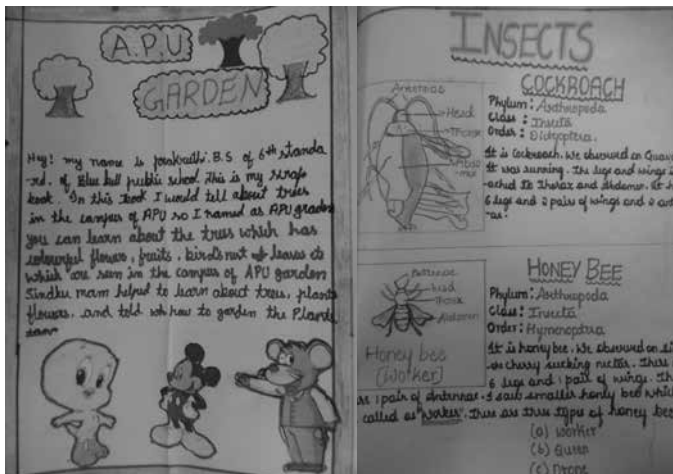 A.P.U
GARDEN
Hey! my name is B.S. of 6th standa
-rd. of Blue bell public school This is my scrap
book. In this book I would tell about trees
in the campus of APU so I named as APU
you can learn about the trees which has
colourful flowers, fruits, bird's nest leaves
which are seen in the campus of APU garden
Sindhu mam helped to learn about trees, plants
flowers, and told us how to garden the Plants
INSECTS
COCKROACH
Antennae
Head
Phylum: Arthropoda
Class: Insecta
Order:
It is Cockroach. We observed on
It was running. The legs and wings
to Thorax and Abdomen.
6 legs and 2 pairs of wings and 2
HONEY BEE
Antennae
head
Thorax
Abdomen
Honey bee
(Worker)
Phylum: Arthropoda
Class: Insecta
Order: Hymenoptra
It is honey bee. We observed on
cherry sucking nectar. There
6 legs and 1 pair of wings.
1 pair of antennae. I saw smaller honey bee which
called as "worker". There are three types of honey bee
(a) Worker
(b) Queen
(c) Drone